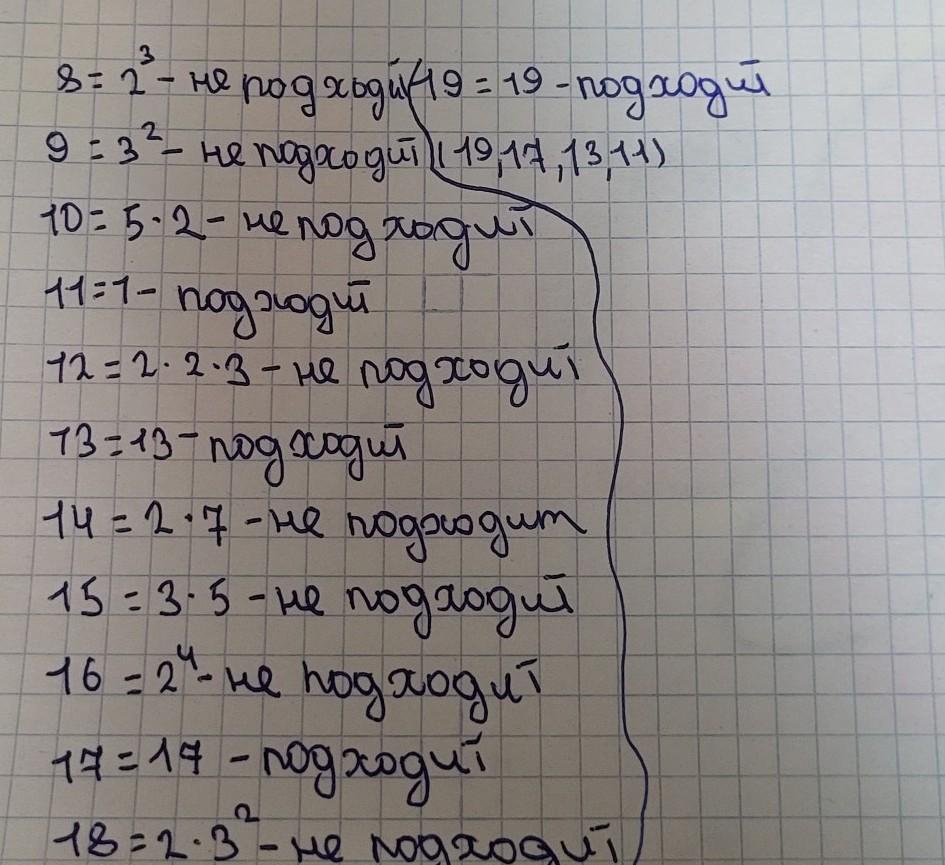 8 = 2³ - не подходит
9 = 3² - не подходит
10 = 5 · 2 - не подходит
11 = 1 - подходит
12 = 2 · 2 · 3 - не подходит
13 = 13 - подходит
14 = 2 · 7 - не подходит
15 = 3 · 5 - не подходит
16 = 2⁴ - не подходит
17 = 17 - подходит
18 = 2 · 3² - не подходит
19 = 19 - подходит
(19, 17, 13, 11)